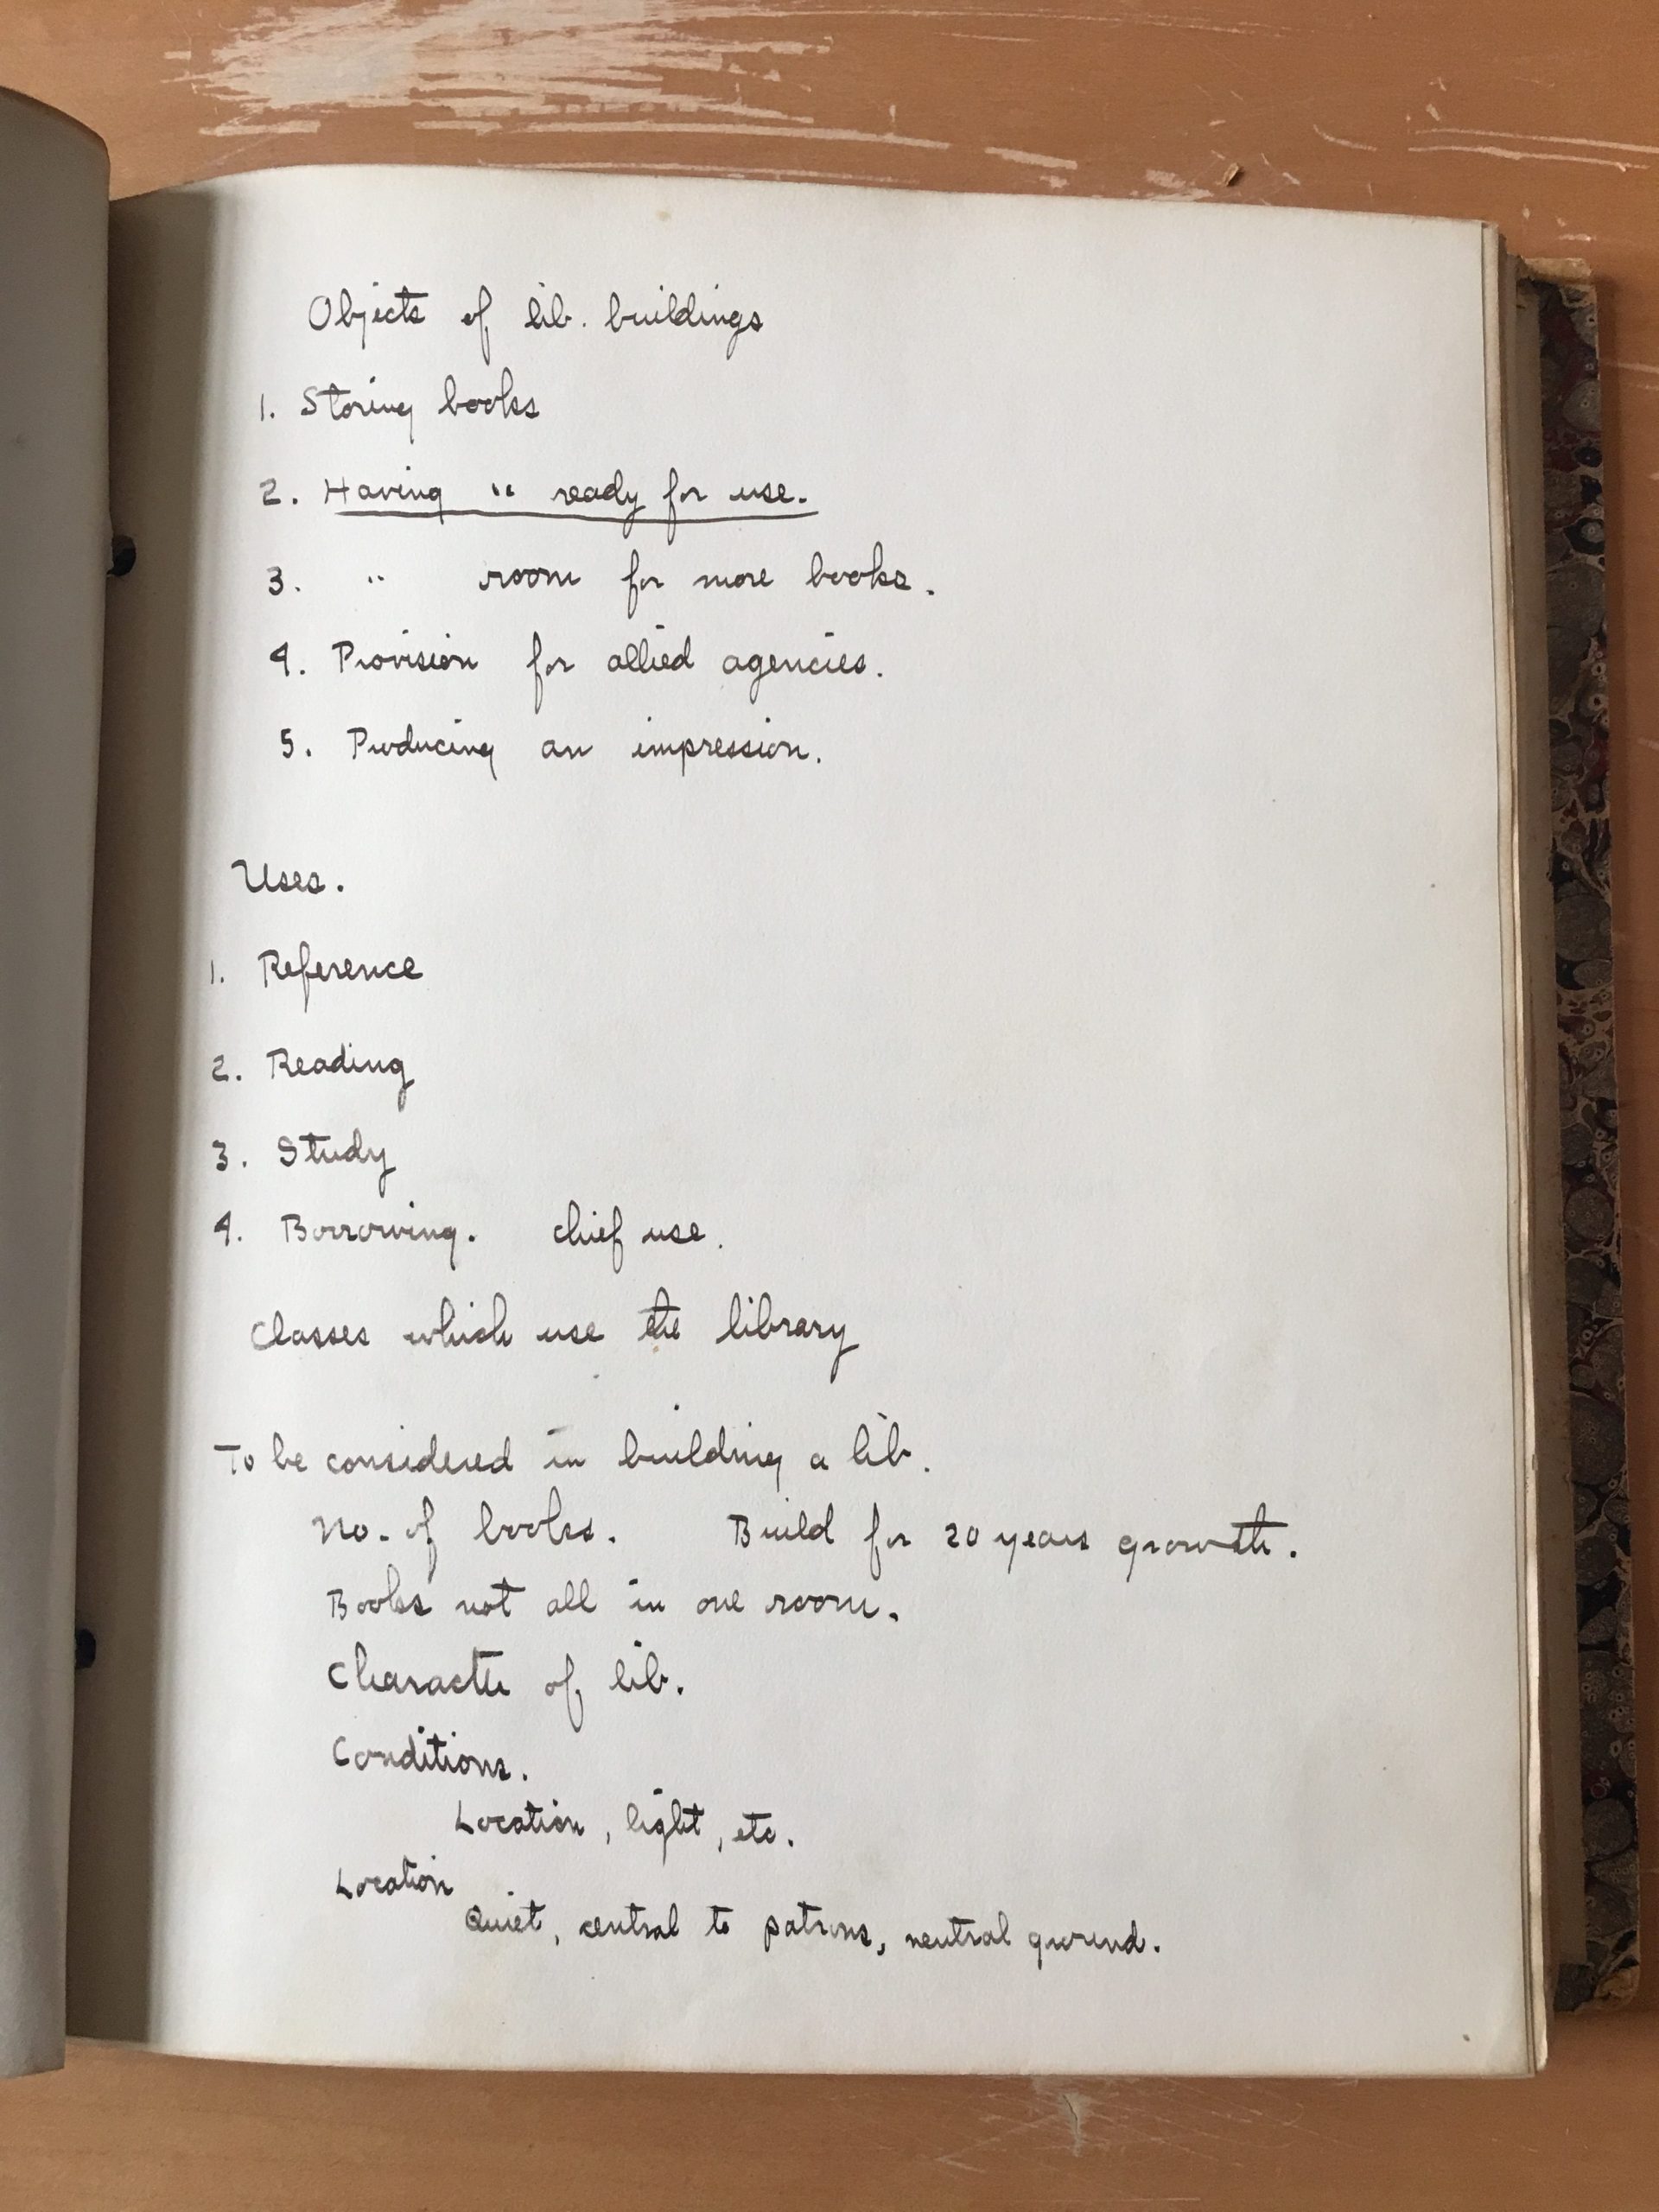 Objects of lib. buildings
1. Storing books
2. Having " ready for use.
3. " room for more books.
4. Provision for allied agencies.
5. Producing an impression.
Uses.
1. Reference
2. Reading
3. Study
4. Borrowing. chief use.
Classes which use the library
To be considered in building a lib.
No. of books. Build for 20 years growth.
Books not all in one room.
Character of lib.
Conditions.
Location, light, etc.
Location
Quiet, central to patrons, neutral ground.